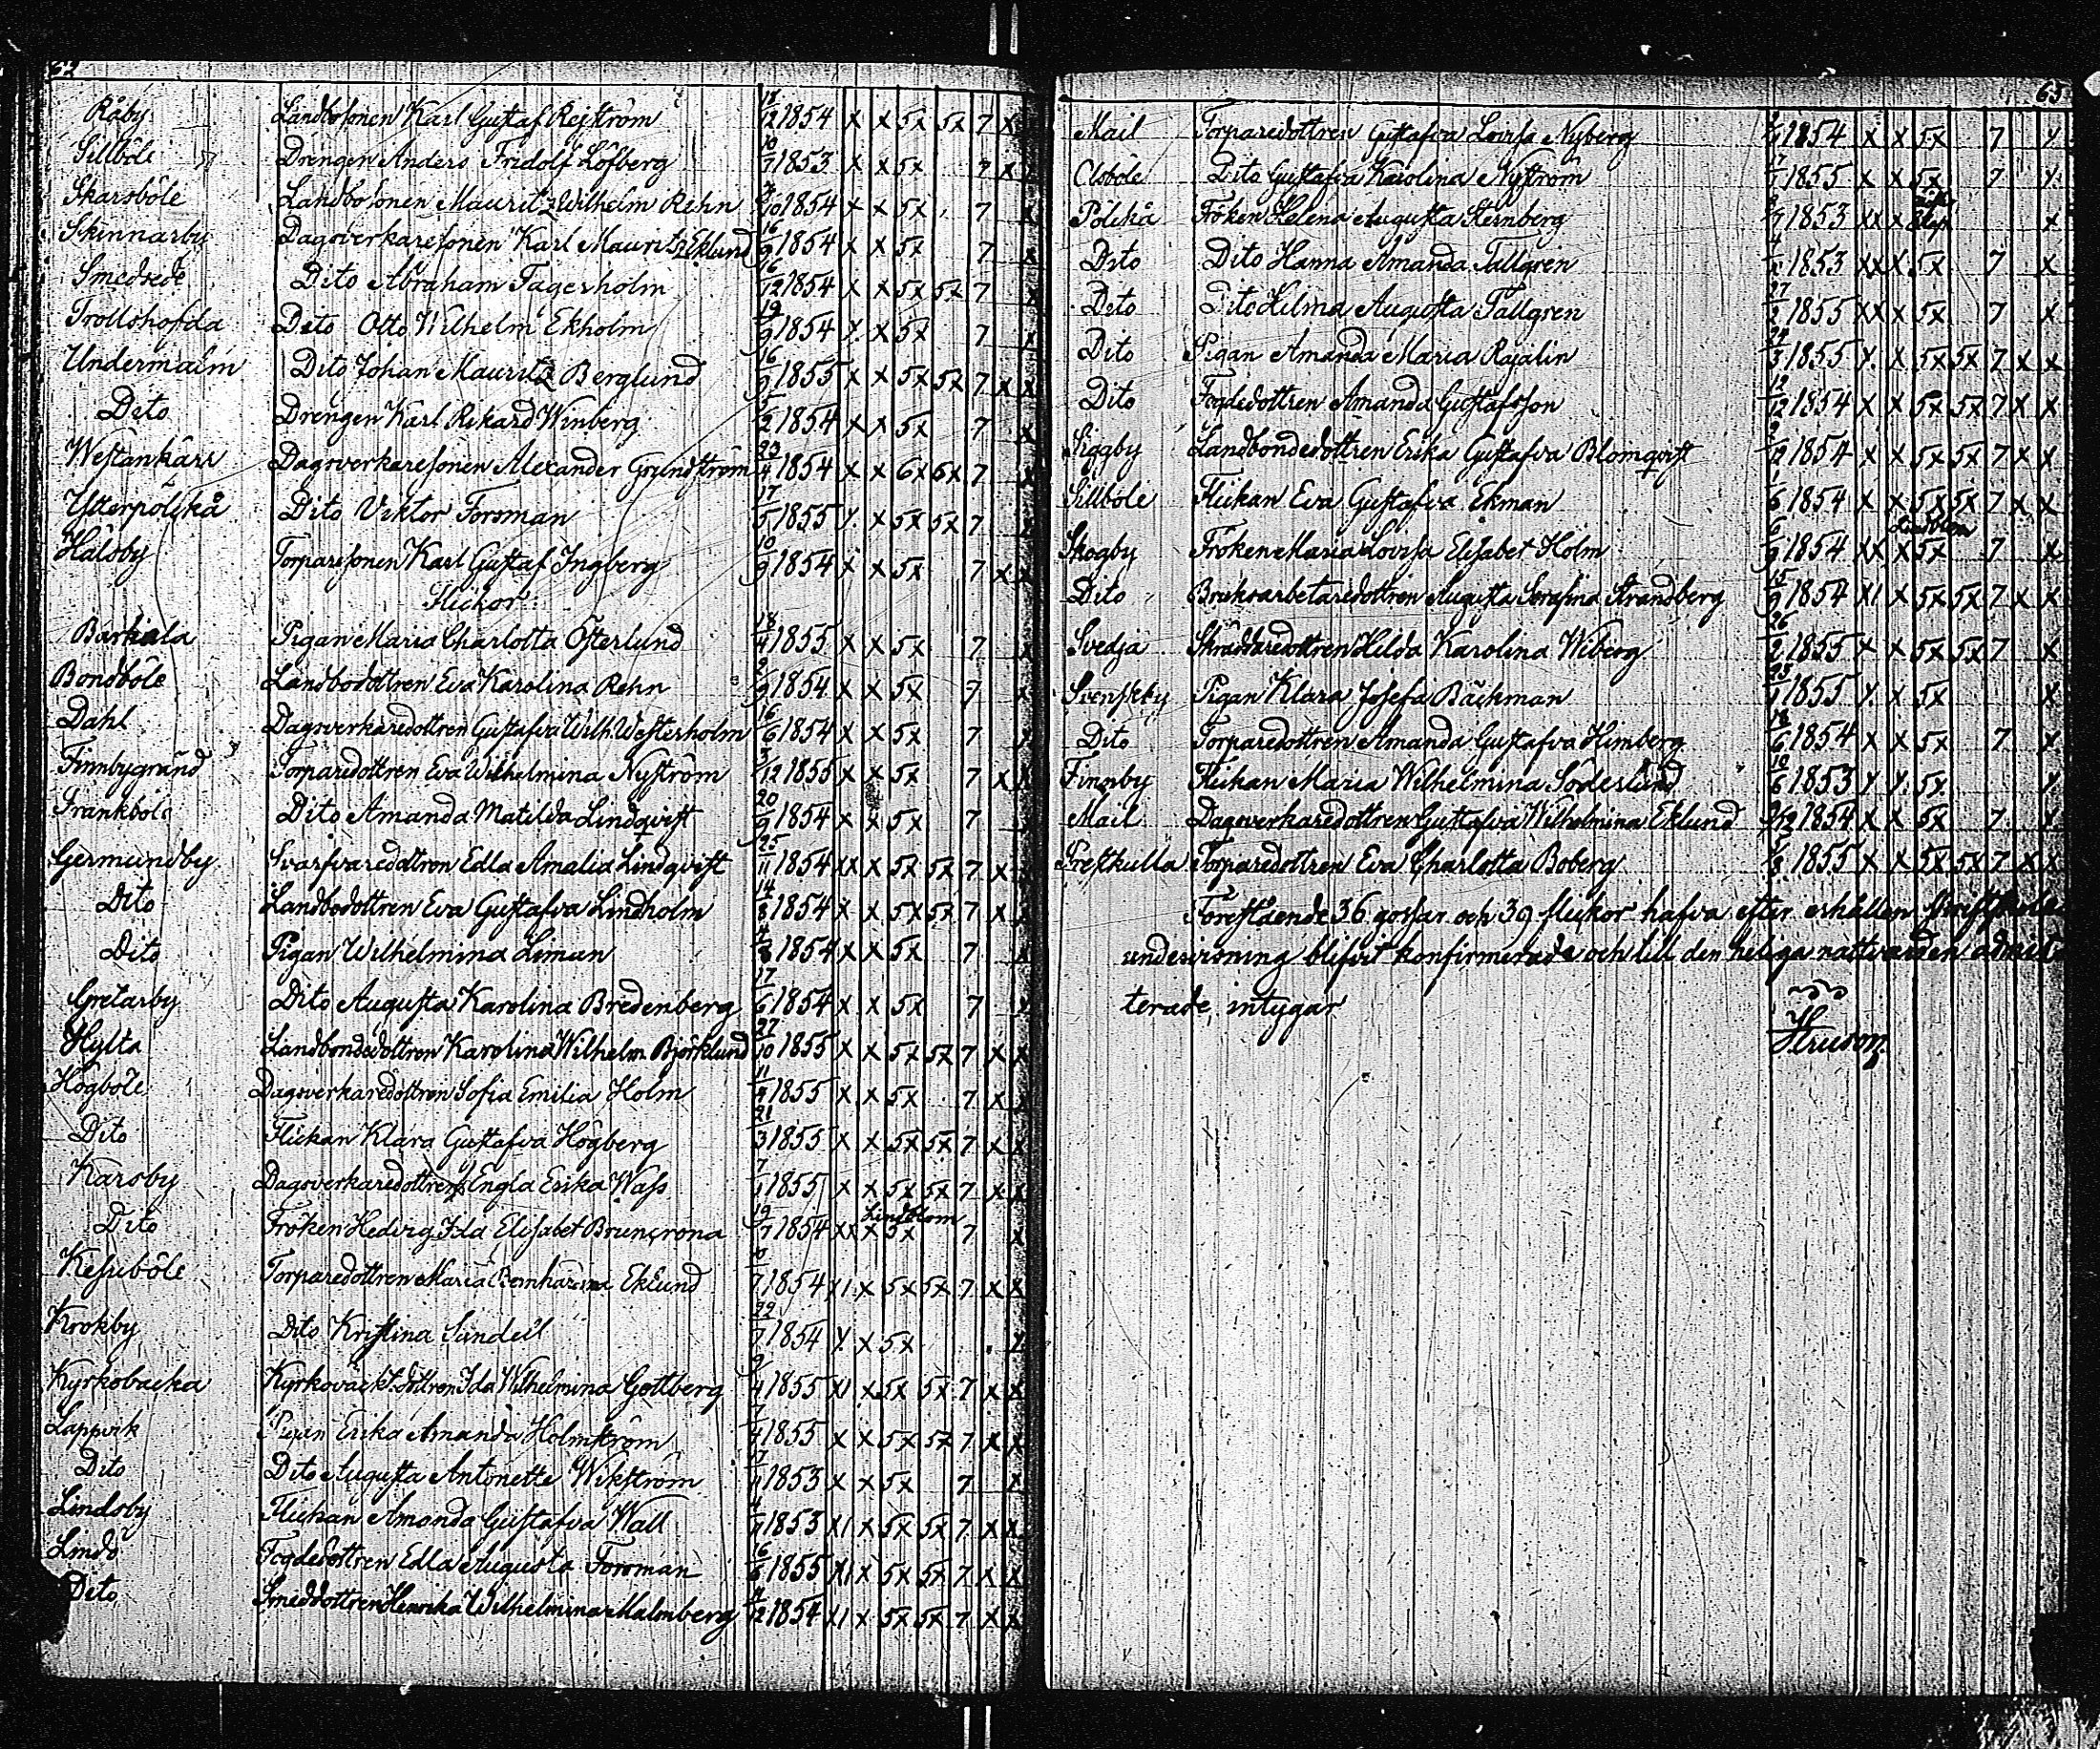 Råby Landbosonen Karl Gustaf Rejström 18/12 1854 x x 5x 5x 7 x
Sillböle Drengen Anders Fridolf Löfberg 10/7 1853 x x 5x 7 x
Skarsböle Landbosonen Mauritz Wilhelm Rehn /10 1854 x x 5x 7 x
Skinnarby Dagsverkaresonen Karl Mauritz Eklund 16/9 1854 x x 5x 7 x
Smedsede Dito Abraham Fagerholm 16/12 1854 x x 5x 5x 7 x
Trollshofda Dito Otto Wilhelm Ekholm 19/9 1854 x x 5x 7 x
Undermalm Dito Johan Mauritz Berglund 16/9 1855 x x 5x 5x 7 x x
Dito Drengen Karl Rikard Winberg 5/2 1854 x x 5x 7 x
Westankärr Dagsverkaresonen Alexander Grundström 23/4 1854 x x 6x 6x 7 x
Ytterpölskå Dito Viktor Forsman 17/5 1855 x x 5x 5x 7 x
Hålsby Torparesonen Karl Gustaf Ingberg 10/9 1854 x x 5x 7 x x
Flickor
Barkala Pigan Maria Charlotta Österlund 18/4 1855 x x 5x 7 x
Bondböle Landbodottren Eva Karolina Rehn 2/9 1854 x x 5x 7 x
Dahl Dagsverkaredottren Gustafva Wilh. Westerholm 16/6 1854 x x 5x 7 x
Finnbygränd Torparedottren Eva Wilhelmina Nyström 3/12 1855 x x 5x 7 x x
Frankböle Dito Amanda Matilda Lindqvist 20/9 1854 x x 5x 7
Germundby Svarfvaredottren Edla Amalia Lindqvist 25/11 1854 xx x 5x 5x 7 x
Dito Landbodottren Eva Gustafva Lindholm 14/8 1854 x x 5x 5x 7 x x
Dito Pigan Wilhelmina Liman 1854 x x 5x 7 x
Gretarby Dito Augusta Karolina Bredenberg 17/6 1854 x x 5x 7 x
Hylta Landbondedottren Karolina Wilhelm. Björklund 27/10 1855 x x 5x 5x 7 x x
Högböle Dagsverkaredottren Sofia Emilia Holm 11/4 1855 x x 5x 7 x x
Dito Flickan Klara Gustafva Högberg 21/3 1855 x x 5x 5x 7 x x
Karsby Dagsverkaredottren Engla Erika Wass 7/1 1855 x x 5x 5x 7 x x
Lindblom
Dito Fröken Hedvig Ida Elisabet Bruncrona 19/7 1854 xx x 5x 7 x
Kesuböle Torparedottren Maria Bernhardina Eklund 10/7 1854 x1 x 5x 5x 7 x x
Krokby Dito Kristina Sundell 22/7 1854 x x 5x x
Kyrkobacka Kyrkovackt.dottren Ida Wilhelmina Gottberg 9/4 1855 x1 x 5x 5x 7 x x
Lappvik Pigan Erika Amanda Holmström 7/4 1855 x x 5x 5x 7 x x
Dito Dito Augusta Antonette Wikström 1853 x x 5x 7 x
Lindsby Flickan Amanda Gustafva Wall 1853 x1 x 5x 5x 7 x x
Lindö Fogdedottren Edla Augusta Forsman 16/6 1855 x1 x 5x 5x 7 x x
Dito Smeddottren Henrika Wilhelmina Malmberg /12 1854 x1 x 5x 5x 7 x x
65
Mail Torparedottren Gustafva Lovisa Nyberg 1854 x x 5x 7 x
Olsböle Dito Gustafva Karolina Nyström 17/1 1855 x x 5x 7 x
Pölskå Fröken Helena Augusta Sternberg 1853 xx x x
Dito Dito Hanna Amanda Tallgren 1853 xx x 5x 7 x
Dito Dito Hilma Augusta Tallgren 27/2 1855 xx x 5x 7 x
Dito Pigan Amanda Maria Rajalin 29/3 1855 x x 5x 5x 7 x x
Dito Fogdedottren Amanda Gustafsson 12/12 1854 x x 5x 5x 7 x x
Siggby Landbondedottren Erika Gustafva Blomqvist 9/12 1854 x x 5x 5x 7 x x
Sillböle Flickan Eva Gustafva Ekman /6 1854 x x 5x 5x 7 x x
Lindblom
Skogby Fröken Maria Lovisa Elisabet Holm 6/9 1854 xx x 5x 7 x
Dito Bruksarbetaredottren Augusta Serafina Strandberg 15/9 1854 x1 x 5x 5x 7 x x
Svedja Skräddaredottren Hilda Karolina Wiberg 26/2 1855 x x 5x 5x 7 x
Svenskby Pigan Klara Josefa Bäckman 25/1 1855 x x 5x x
Dito Torparedottren Amanda Gustafva Himberg 18/6 1854 x x 5x 7 x
Finnby Flickan Maria Wilhelmina Söderlund 10/6 1853 x x 5x x
Mail Dagsverkaredottren Gustafva Wilhelmina Eklund /12 1854 x x 5x 7 x
Prestkulla Torparedottren Eva Charlotta Boberg /8 1855 x x 5x 5x 7 x x
Förestående 36 gossar och 39 flickor hafva efter erhållen
undervisning blifvit konfirmerade och till den heliga nattvarden admit
terade, intygar